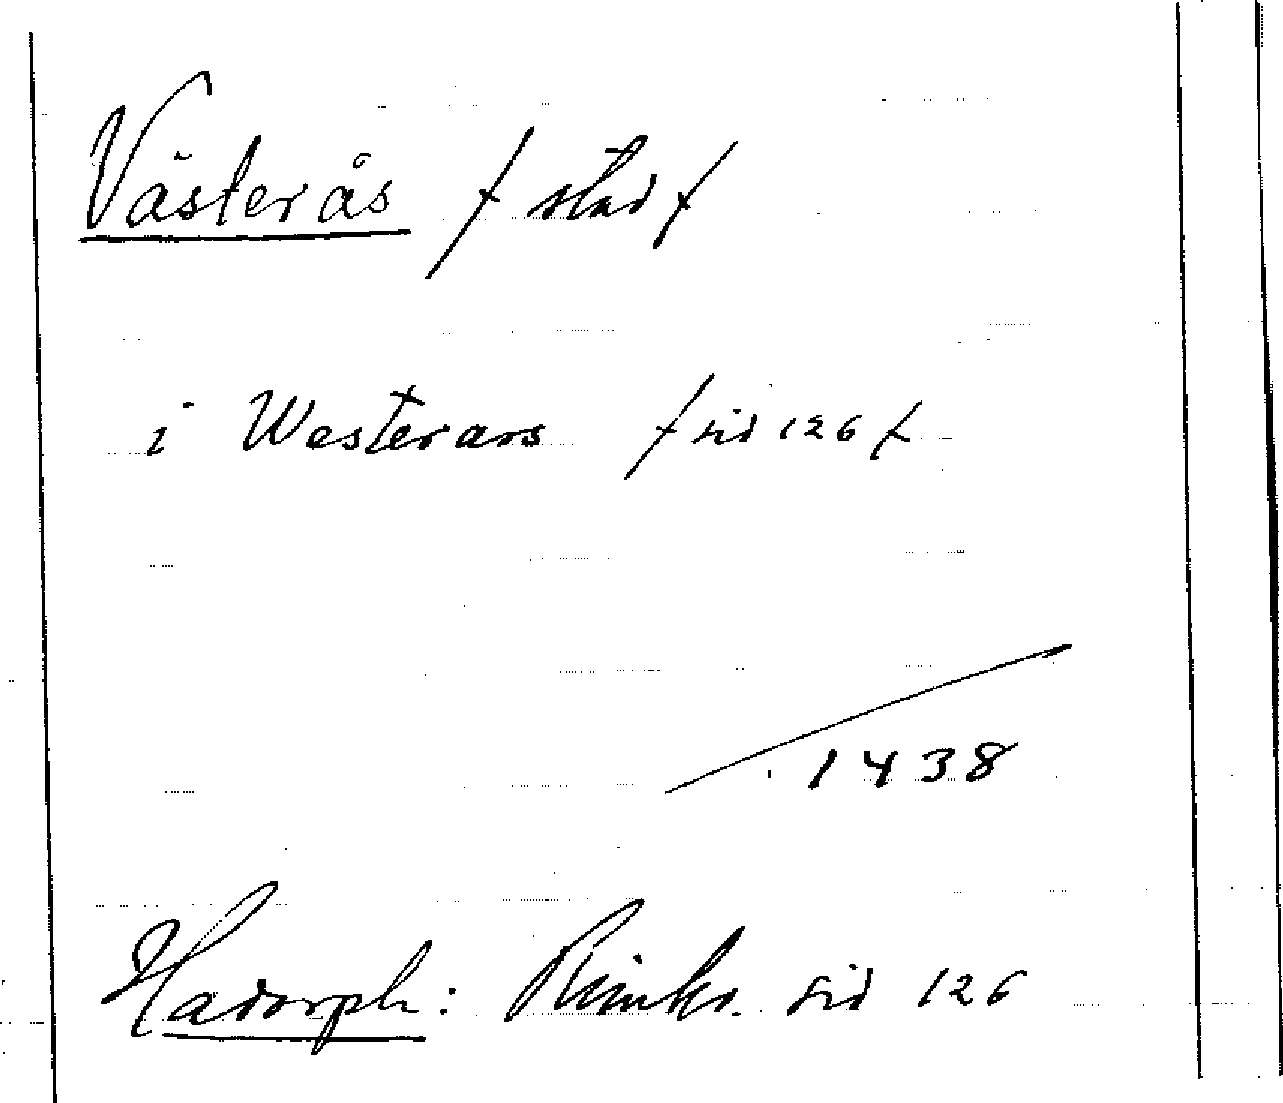 Västerås / stad /
i Westerars / sid 126 /
1438
Hadorph: Rimkr. sid 126